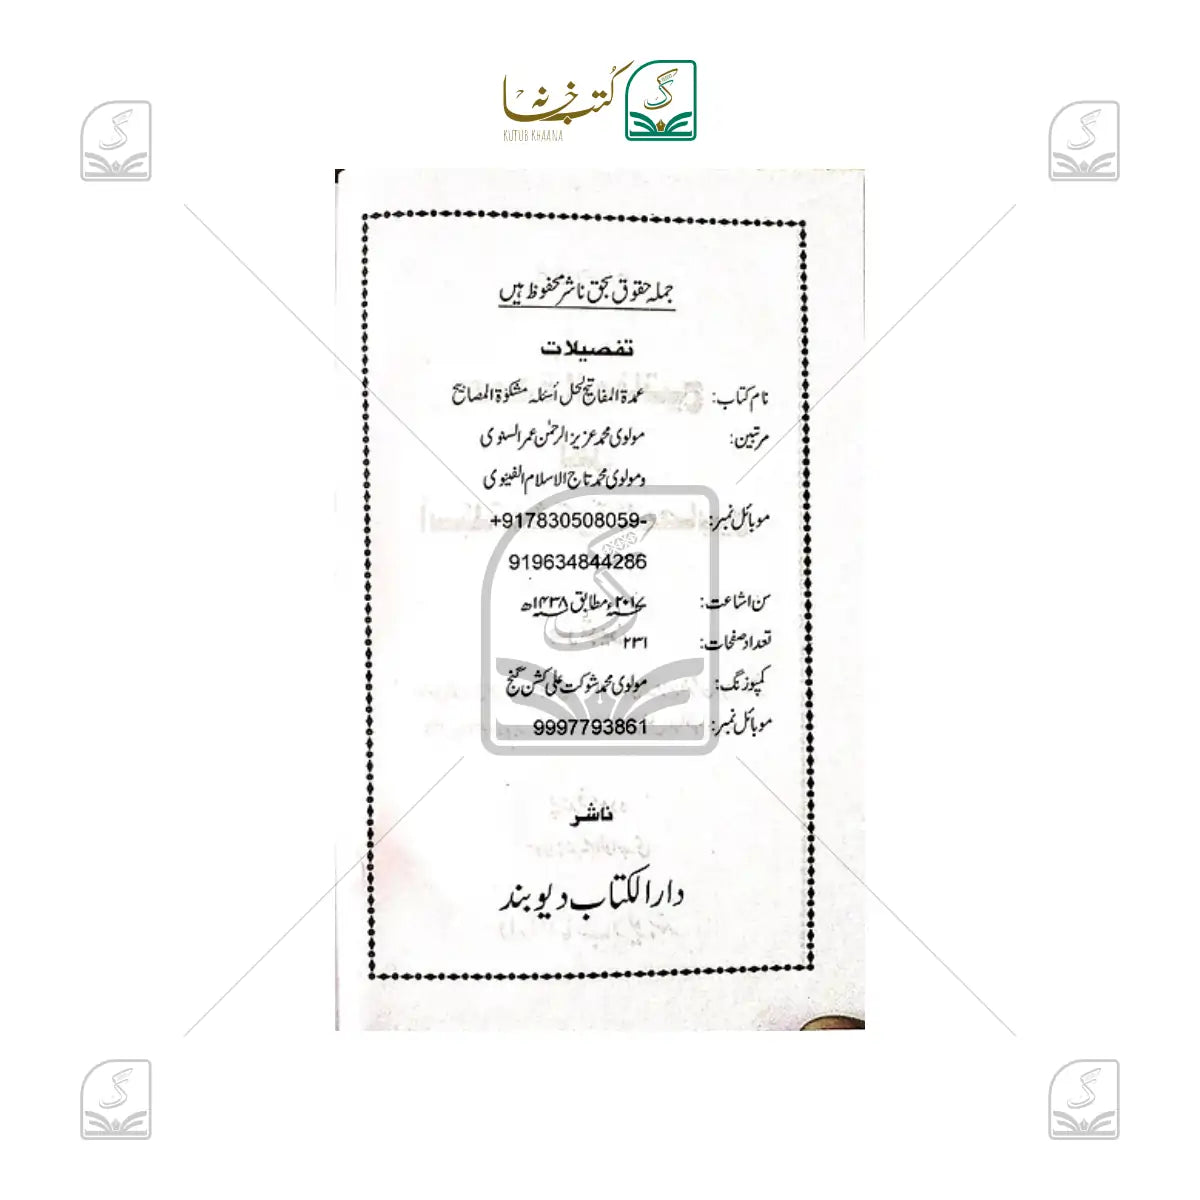 کتب خانہ
KUTUB KHAANA
جملہ حقوق بحق ناشر محفوظ ہیں
تفصیلات
نام کتاب: عمدۃ المفاتیح لحل أسئلہ مشکوٰۃ المصابیح
مرتبین: مولوی محمد عزیز الرحمٰن عمر السنوی
ومولوی محمد تاج الاسلام الفینوی
موبائل نمبر: +917830508059-
919634844286
سن اشاعت: ۲۰۱۷ء مطابق ۱۴۳۸ھ
تعداد صفحات: ۲۳۱
کمپوزنگ: مولوی محمد شوکت علی کشن گنج
موبائل نمبر: 9997793861
ناشر
دارالکتاب دیوبند